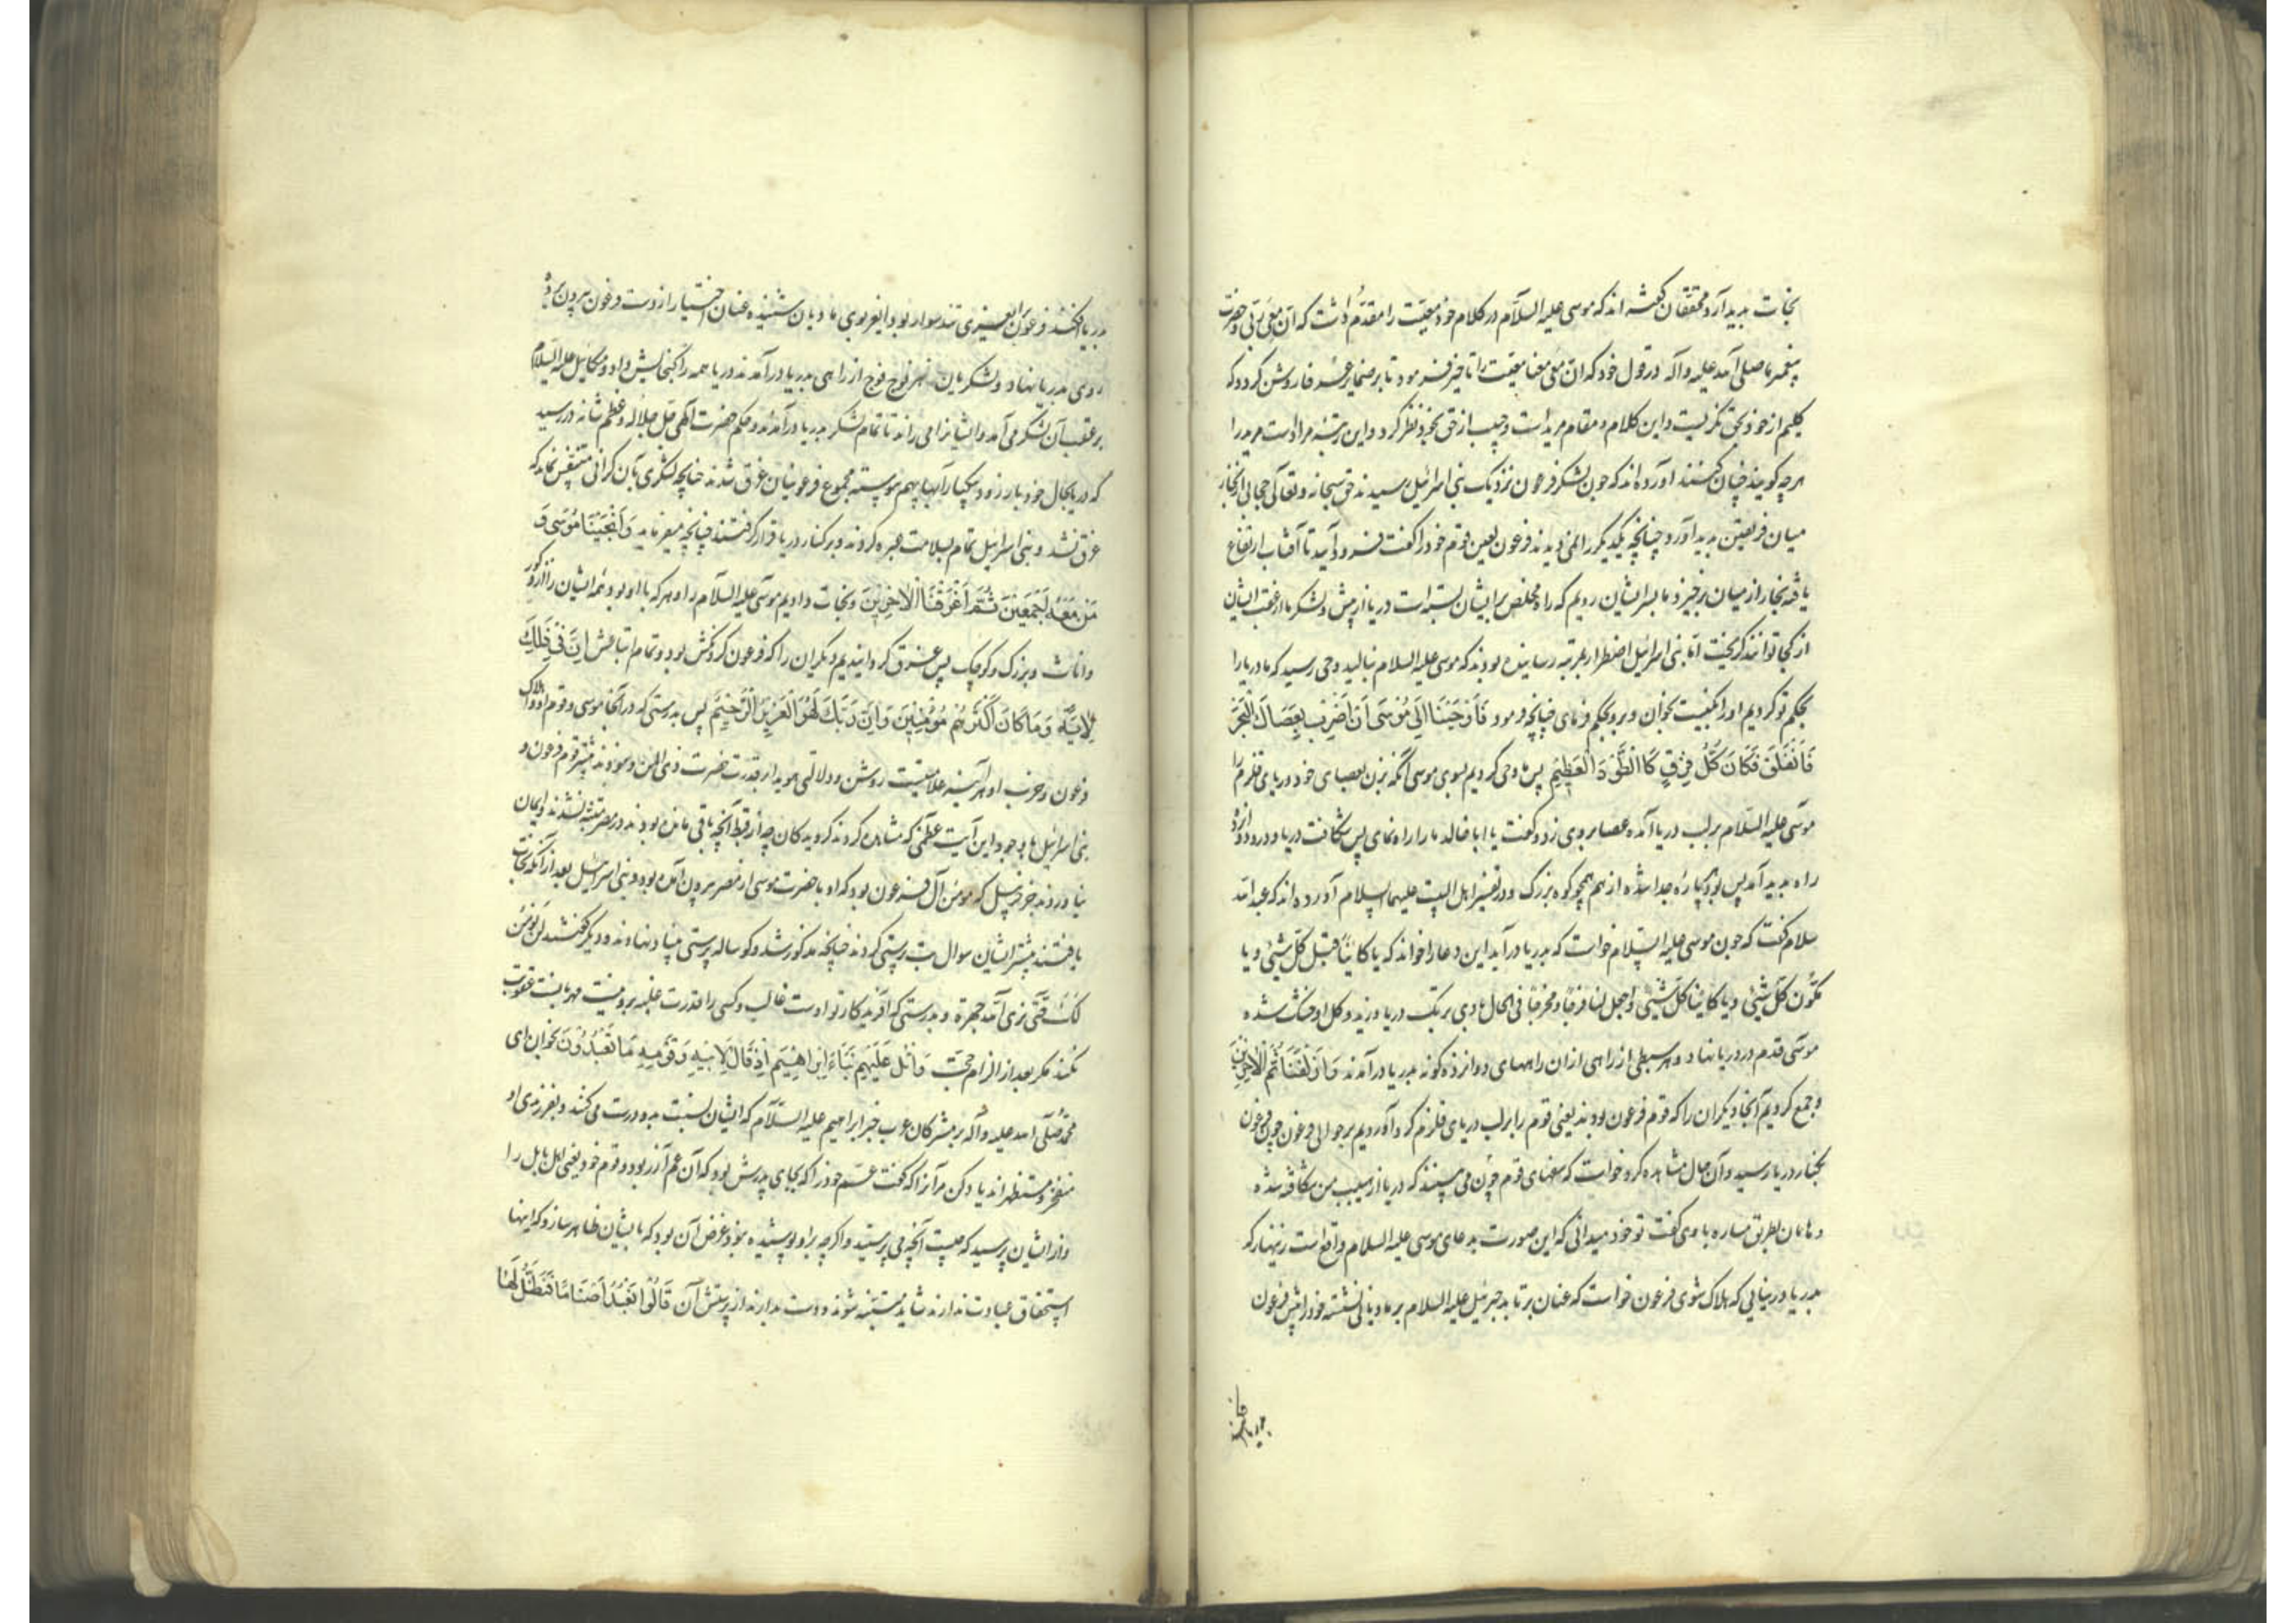 نجات پدید آرد و محققان گفته اند که موسی علیه السلام در کلام خود معیت را مقدم داشت که ان معی ربی و حضرت
پیغمبر ما صلی الله علیه و آله در قول خود که ان الله معنا معیت را تاخیر فرمود تا بر ضمایر عرفا روشن گردد که
کلیم از خود بحق نگریست و این کلام و مقام مرید است و حبیب از حق بخود نظر کرد و این مرتبه مراد است مرید را
هر چه کویند چنان کنند آورده اند که چون لشکر فرعون نزدیک بنی اسرائیل رسیدند حق سبحانه و تعالی حجابی از بخار
میان فریقین پدید آورد چنانچه یکدیگر را نمی دیدند فرعون لعین قوم خود را گفت فرود آیید تا آفتاب ارتفاع
یافته بخار از میان برخیزد ما بسر ایشان رویم که راه مخلص بر ایشان بسته است دریا از پیش و لشکر ما از عقب ایشان
از کجا توانند گریخت اما بنی اسرائیل اضطرار بمرتبه رسانیده بودند که موسی علیه السلام نبالید وحی رسید که ما دریا را
بحکم تو کردیم او را بخوان و برو حکم فرمای چنانچه فرمود فَأَوْحَيْنَا إِلَى مُوسَى أَنِ اضْرِبْ بِعَصَاكَ الْبَحْرَ
فَانْفَلَقَ فَكَانَ كُلُّ فِرْقٍ كَالطَّوْدِ الْعَظِيمِ پس ما وحی کردیم بسوی موسی آنکه بزن بعصای خود دریای قلزم را
موسی علیه السلام بر لب دریا آمده عصا بروی زد و گفت یا ابا خالد ما را راه نمای پس شکافت دریا و درو دوازده
راه پدید آمد پس بود هر پاره جدا شده از هم همچو کوه بزرگ و در تفسیر اهل البیت علیهم السلام آورده اند که عبد الله
سلام گفت که چون موسی علیه السلام خواست که بدریا در آید این دعا را خواند که یا کائنا قبل کل شیئ و یا
مکون کل شیئ و یا کائنا کل شیئ واجعل لنا فرجا و مخرجا فی الحال بادی بر تک دریا وزید و گل او خشک شده
موسی قدم در دریا نهاد و هر سبطی از راهی ازان راههای دوازده گونه بدریا در آمدند وَأَزْلَفْنَا ثَمَّ الْآخَرِينَ
و جمع کردیم آنجا دیگران را که قوم فرعون بودند یعنی قوم را بر لب دریای قلزم گرد آوردیم بر حوالی فرعون چون فرعون
بکنار دریا رسید و آن حال مشاهده کرد خواست که سفهای قوم چون می بینند که دریا از سبب من شکافته شده
و هامان بطریق مساره با وی گفت تو خود میدانی که این صورت بدعای موسی علیه السلام واقع است زینهار که
بدریا در نیایی که هلاک شوی فرعون خواست که عنان برتابد جبرئیل علیه السلام بر مادیانی نشسته خود را پیش فرعون
بدریا افکند فرعون بر اسبی تند سوار بود اسب بوی مادیان شنیده عنان اختیار از دست فرعون بیرون برده
روی بدریا نهاد و لشکریان نیز فوج فوج از راهی بدریا در آمدند دریا همه را گنجایش داد و میکائیل علیه السلام
بر عقب آن لشکر می آمد و ایشان را می راند تا تمام لشکر بدریا در آمدند و حکم حضرت الهی جل جلاله و عظم شانه در رسید
که دریا بحال خود باز رود بیکبار آبها بهم پیوسته مجموع فرعونیان غرق شدند چنانچه لشکری بآن گرانی متنفس نماند که
غرق نشد و بنی اسرائیل تمام بسلامت عبره کردند و بر کنار دریا قرار گرفتند چنانچه میفرماید وَأَنْجَيْنَا مُوسَى وَ
مَنْ مَعَهُ أَجْمَعِينَ ثُمَّ أَغْرَقْنَا الْآخَرِينَ و نجات دادیم موسی علیه السلام را و هر که با او بود همه ایشان را از ذکور
و اناث و بزرگ و کوچک پس غرق گردانیدیم دیگران را که فرعون گردنکش بود و تمام اتباعش إِنَّ فِي ذَلِكَ
لَآيَةً وَمَا كَانَ أَكْثَرُهُمْ مُؤْمِنِينَ وَإِنَّ رَبَّكَ لَهُوَ الْعَزِيزُ الرَّحِيمُ پس بدرستی که در انجا موسی و قوم او و هلاک
فرعون و حزب او هر آینه علامتیست روشن و دلالتی هویدا بر قدرت حضرت ذی المن و نبودند بیشتر قوم فرعون و
بنی اسرائیل با وجود این آیت عظمی که مشاهده کردند گرویدگان چه از قبط آنچه باقی مانده بودند در مصر متنبه نشدند و ایمان
نیاوردند جز حزبیل که مومن آل فرعون بود که او با حضرت موسی از مصر بیرون آمده بود و بنی اسرائیل بعد از آنکه نجات
یافتند بیشتر ایشان سوال بت پرستی کردند چنانچه مذکور شد و گوساله پرستی بنیاد نهادند و دیگر گفتند لن نومن
لک حتی نری الله جهرة و بدرستی که آفریدگار تو اوست غالب و کسی را قدرت غلبه برو نیست مهربانست عقوبت
نکند مگر بعد از الزام حجت وَاتْلُ عَلَيْهِمْ نَبَأَ إِبْرَاهِيمَ إِذْ قَالَ لِأَبِيهِ وَقَوْمِهِ مَا تَعْبُدُونَ بخوان ای
محمد صلی الله علیه و آله بر مشرکان عرب خبر ابراهیم علیه السلام که ایشان نسبت بدو درست می کنند و بفرزندی او
مفتخر و مستظهراند یاد کن مر آنرا که گفت عم خود را که بجای پدرش بود که آن عم آزر بود و قوم خود یعنی اهل بابل را
و از ایشان پرسید که چیست آنچه می پرستید و اگر چه برو پوشیده نبود غرض آن بود که بایشان ظاهر سازد که اینها
استحقاق عبادت ندارند شاید متنبه شوند و دست بدارند از پرستش آن قَالُوا نَعْبُدُ أَصْنَامًا فَنَظَلُّ لَهَا